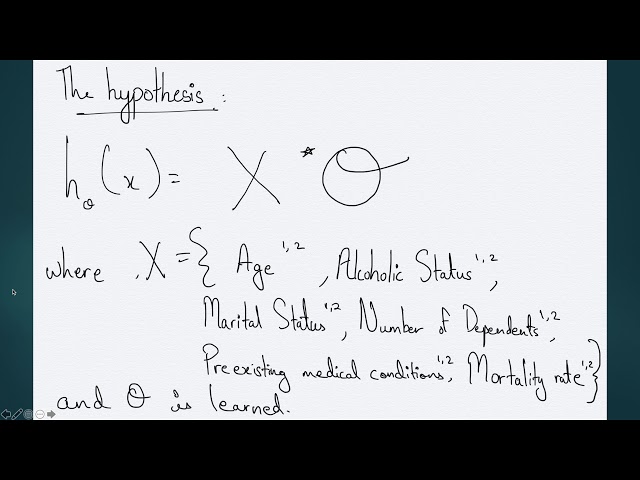 The hypothesis :
h_θ(x) = X * Θ
where , X = { Age ^1,2 , Alcoholic Status ^1,2 ,
Marital Status ^1,2 , Number of Dependents ^1,2 ,
Preexisting medical conditions ^1,2 , Mortality rate ^1,2 }
and Θ is learned.